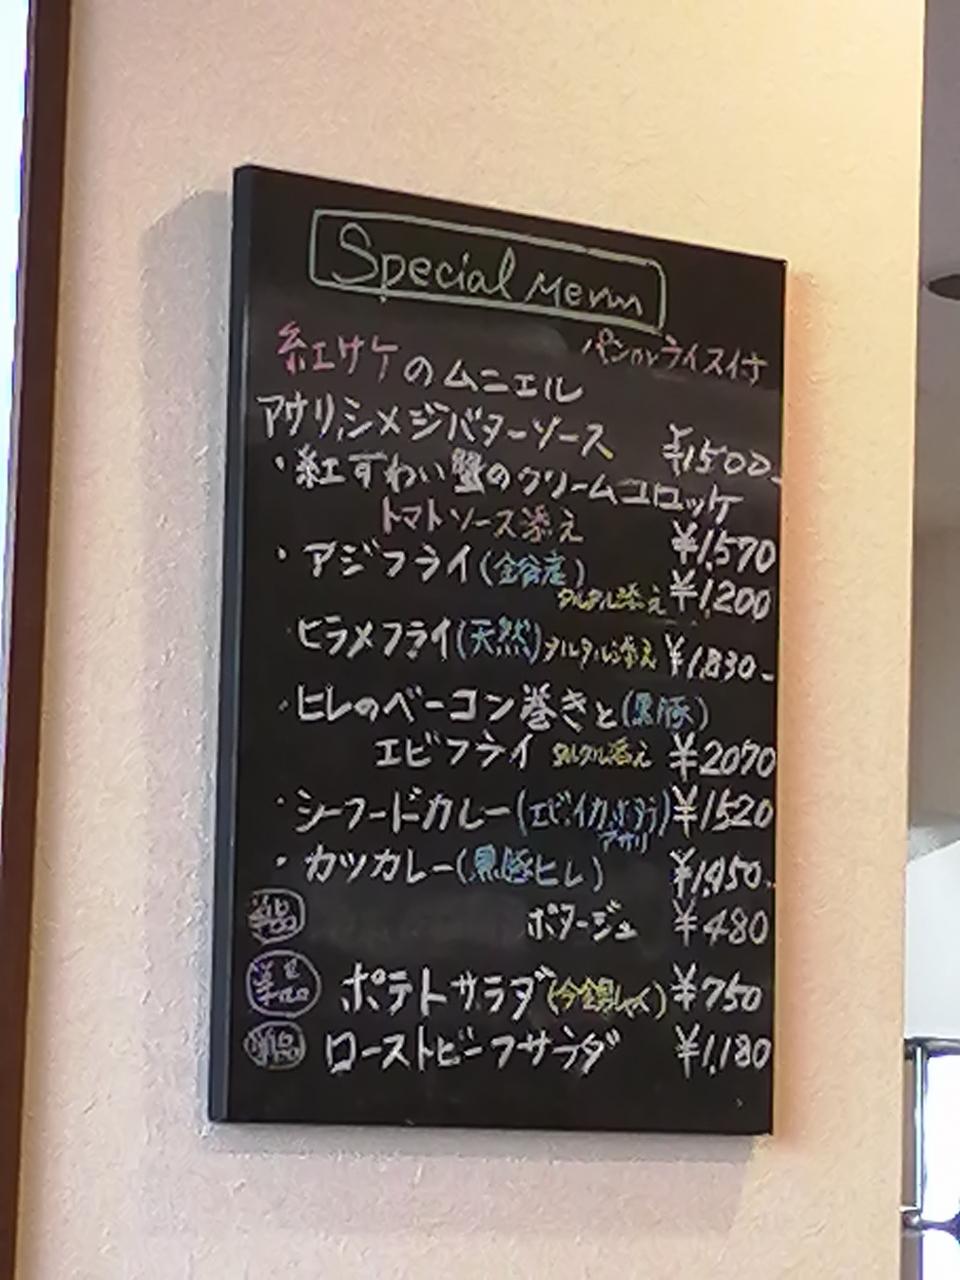 Special Menu
パン or ライス付
紅サケのムニエル
アサリ,シメジバターソース ¥1500-
・紅ずわい蟹のクリームコロッケ
トマトソース添え ¥1,570
・アジフライ(金谷産)
タルタル添え ¥1200
・ヒラメフライ(天然)タルタル添え ¥1,830-
・ヒレのベーコン巻きと(黒豚)
エビフライ タルタル添え ¥2070
・シーフードカレー(エビ,イカ, ¥1520
アサリ
・カツカレー(黒豚ヒレ) ¥1,950-
単品 ポタージュ ¥480
単品 ポテトサラダ ¥750
単品 ローストビーフサラダ ¥1,180